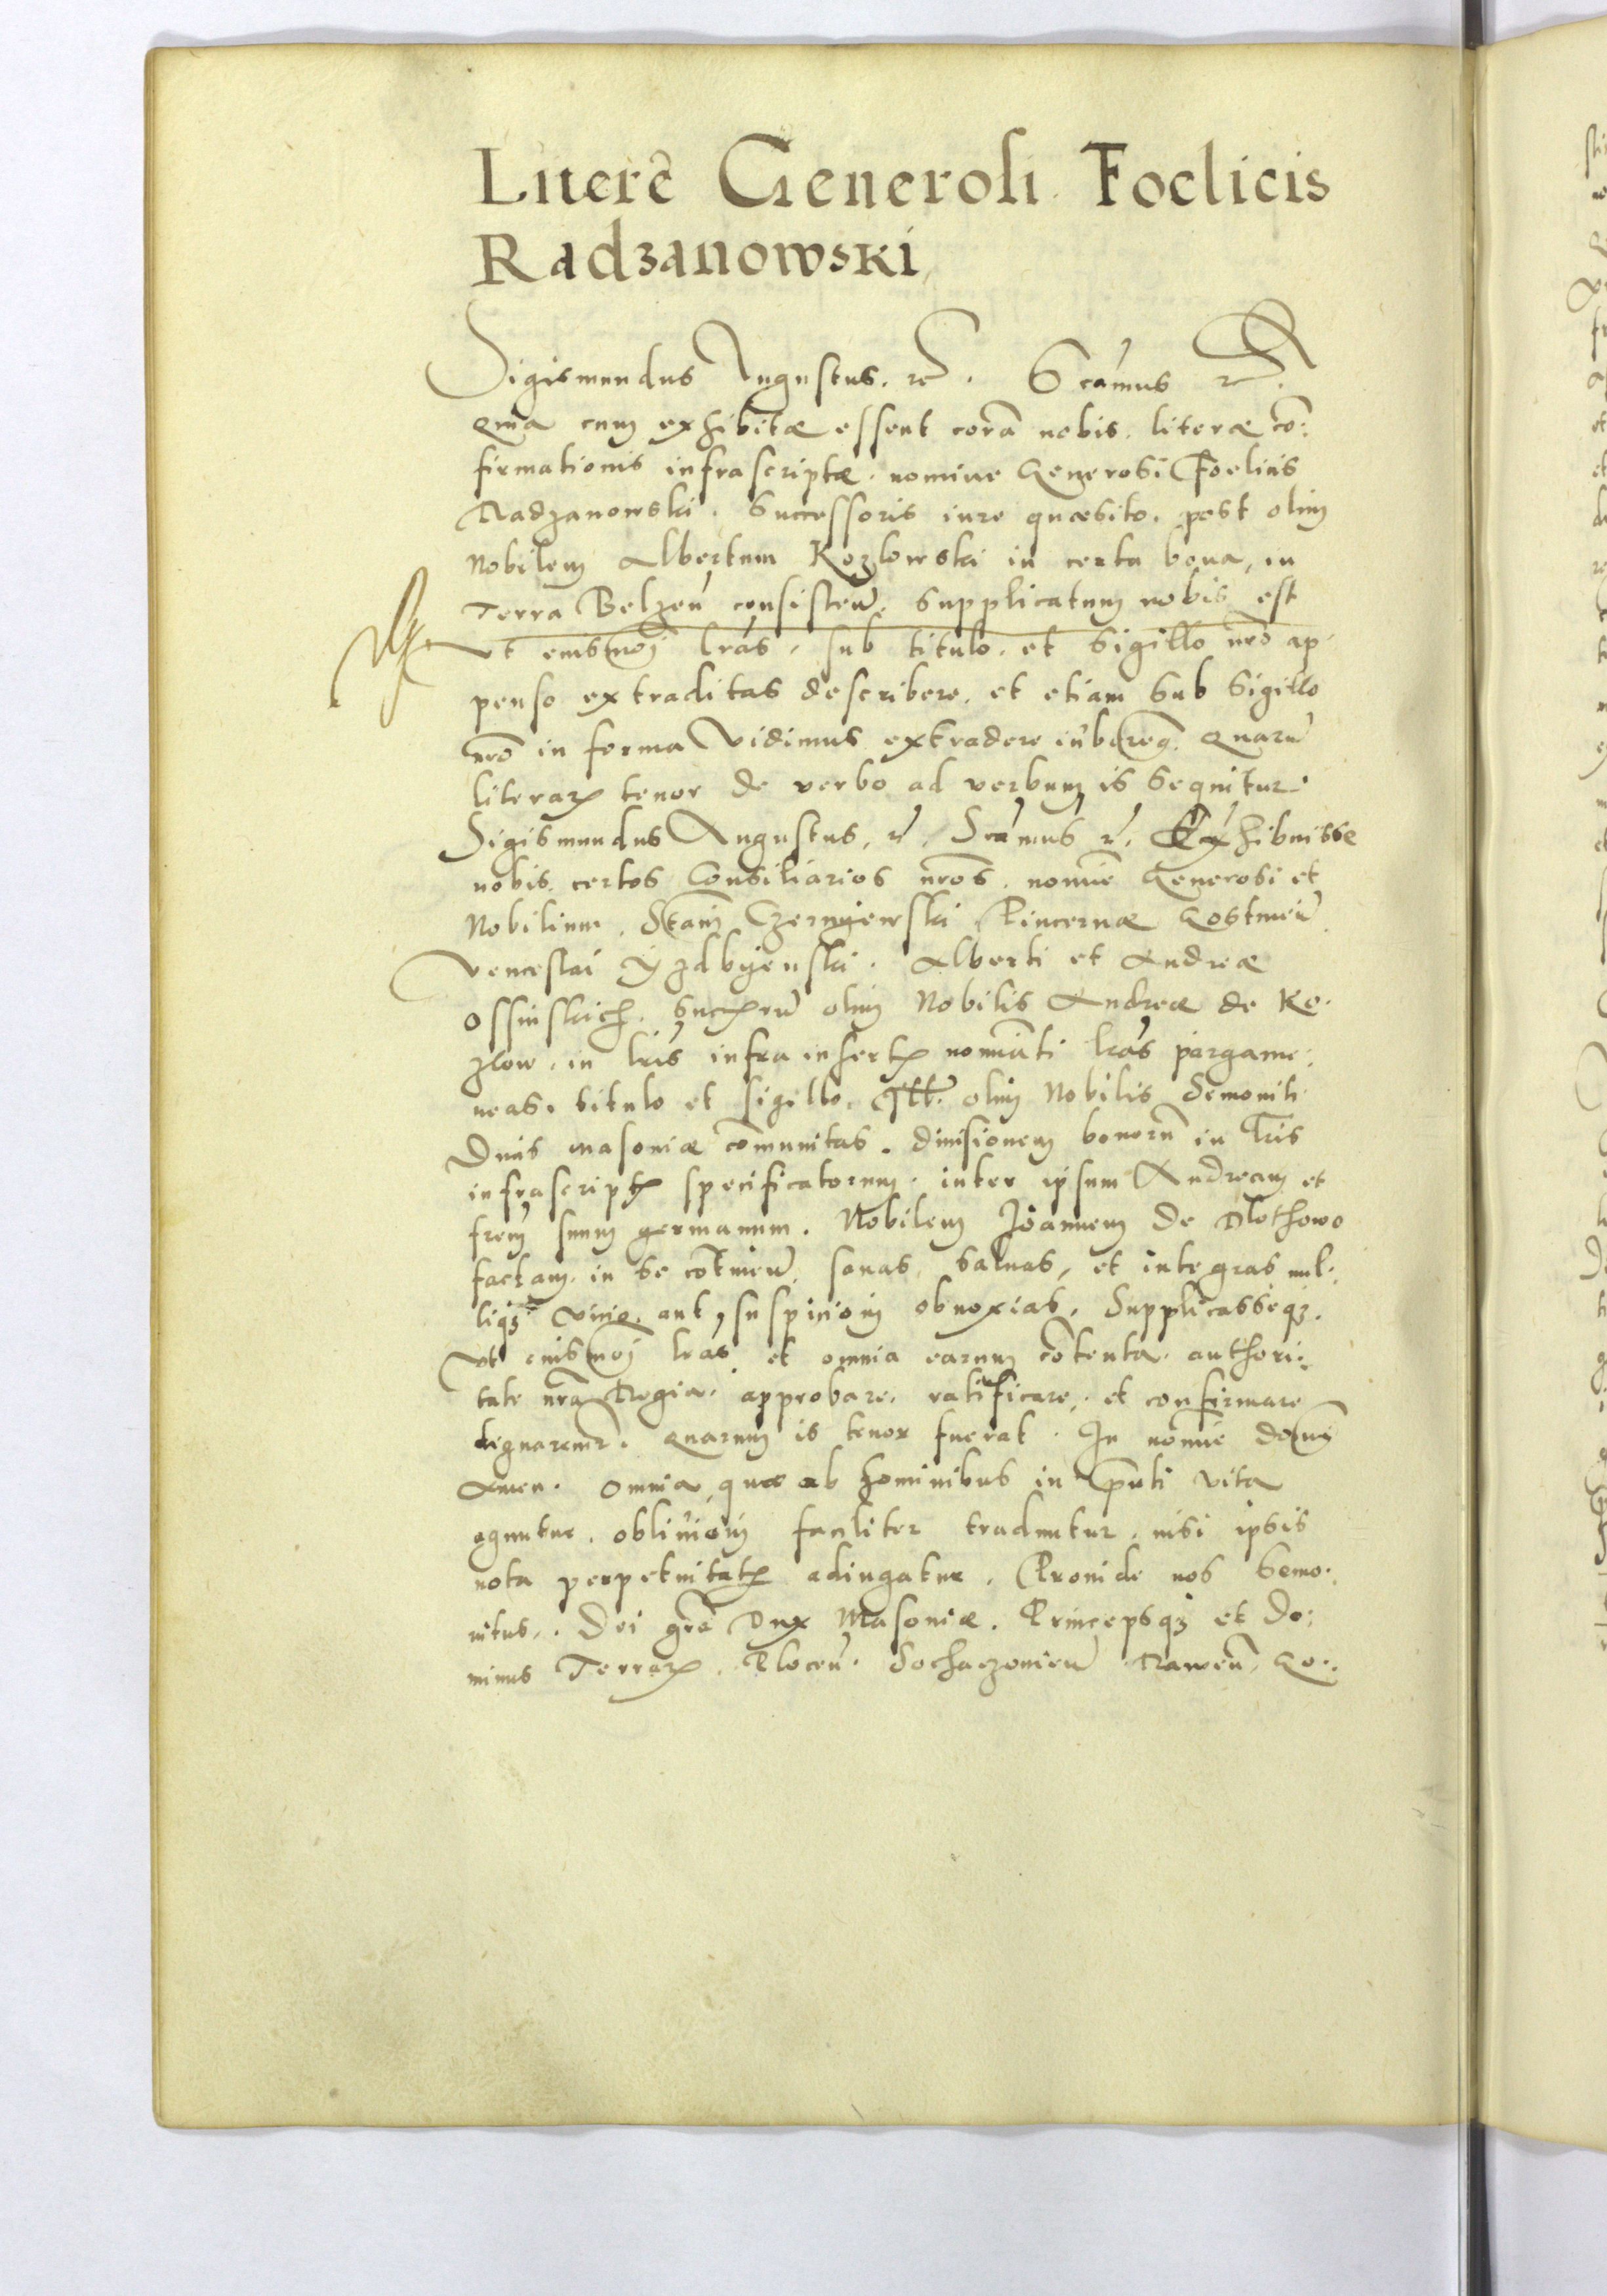 Literę Generosi Foelicis
Radzanowski
Sigismundus Augustus. rc̃. Scamus rc̃.
Quia cum exhibitæ essent corā nobis literæ cō:
firmationis infrascriptæ. nomine Generosi Foelicis
Radzanowski. Successoris iure quæsito. post olim
Nobilem Albertum Kozlowski in certa bona, in
Terra Belzeñ consisteñ. supplicatum nobis est
Vt eiusmoj lras, sub titulo et Sigillo nrō ap
penso extraditas describere. et etiam sub Sigillo
nrō in forma Vidimus extradere iuberem̃. Quarū
literarꝝ tenor de verbo ad verbum is sequitur.
Sigismundus Augustus, rc̃. Scamus rc̃. Exhibuisse
nobis. certos Consiliarios nrōs. nomīe Generosi et
Nobilium. Stanj Czernyewski Pincernæ Gostineñ.
Venceslai Yzdbyenski. Alberti et Andreæ
Ossinskich. Succꝝrū olim Nobilis Andreæ de Ko.
zlow. in lris infra insertꝭ nomiāti lras pargame:
neas. titulo et sigillo. Illr̃. olim Nobilis Semoviti
Ducis Masoviæ cōmunitas. divisionem bonorū in lris
infrascriptꝭ specificatorum. inter ipsum Andream et
frem suum germanum. Nobilem Joannem de Mlothowo
factam. in se cōtineñ. sanas. saluas, et integras nul:
liqꝫ vicio. aut suspicionj obnoxias. Supplicasseqꝫ.
Vt eiusmoj lras et omnia earum cōtenta. authori:
tate nrā Regia. approbare, ratificare, et confirmare
dignaremr̃. Quarum is tenor fuerat. In nomīe domī
Amen. Omnia quæ ab hominibus in p̄nti vita
aguntur. oblivionj faciliter traduntur. nisi ipsis
nota perpetuitatꝭ adiugatur. Proinde nos Semo:
vitus. Dei grā Dux Masoviæ. Princepsqꝫ et Do:
minus Terrarꝝ. Ploceñ. Sochaczovieñ Raweñ, Go: